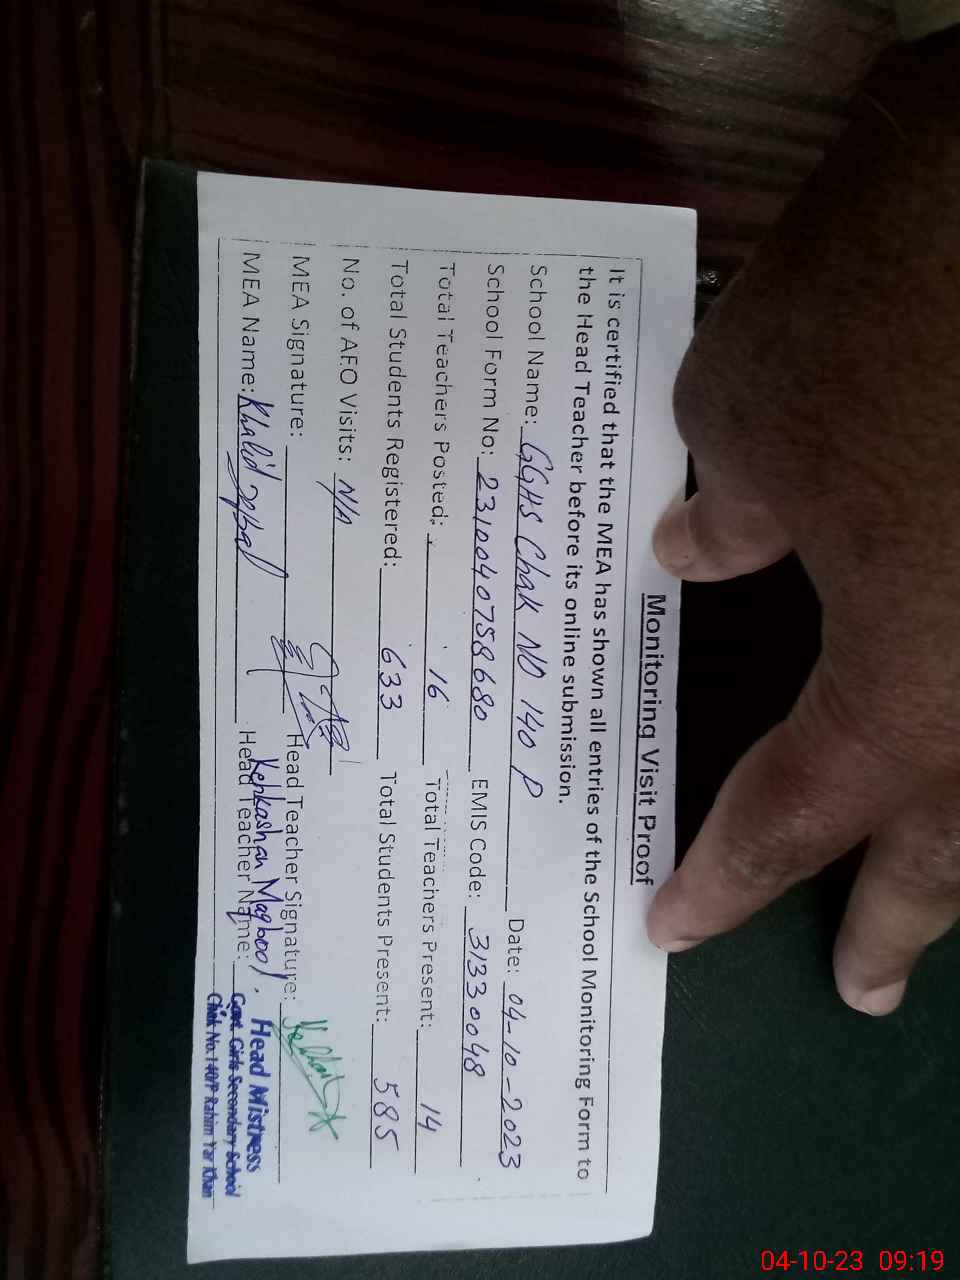 Monitoring Visit Proof
It is certified that the MEA has shown all entries of the School Monitoring Form to
the Head Teacher before its online submission.
School Name: GGHS Chak NO 140 P Date: 04-10-2023
School Form No: 2310040758680 EMIS Code: 31330048
Total Teachers Posted: 16 Total Teachers Present: 14
Total Students Registered: 633 Total Students Present: 585
No. of AEO Visits: N/A
MEA Signature: Head Teacher Signature:
MEA Name: Khalid Iqbal Head Teacher Name: Kehkashan Maqbool.
Head Mistress
Govt. Girls Secondary School
Chak No.140/P Rahim Yar Khan
04-10-23 09:19